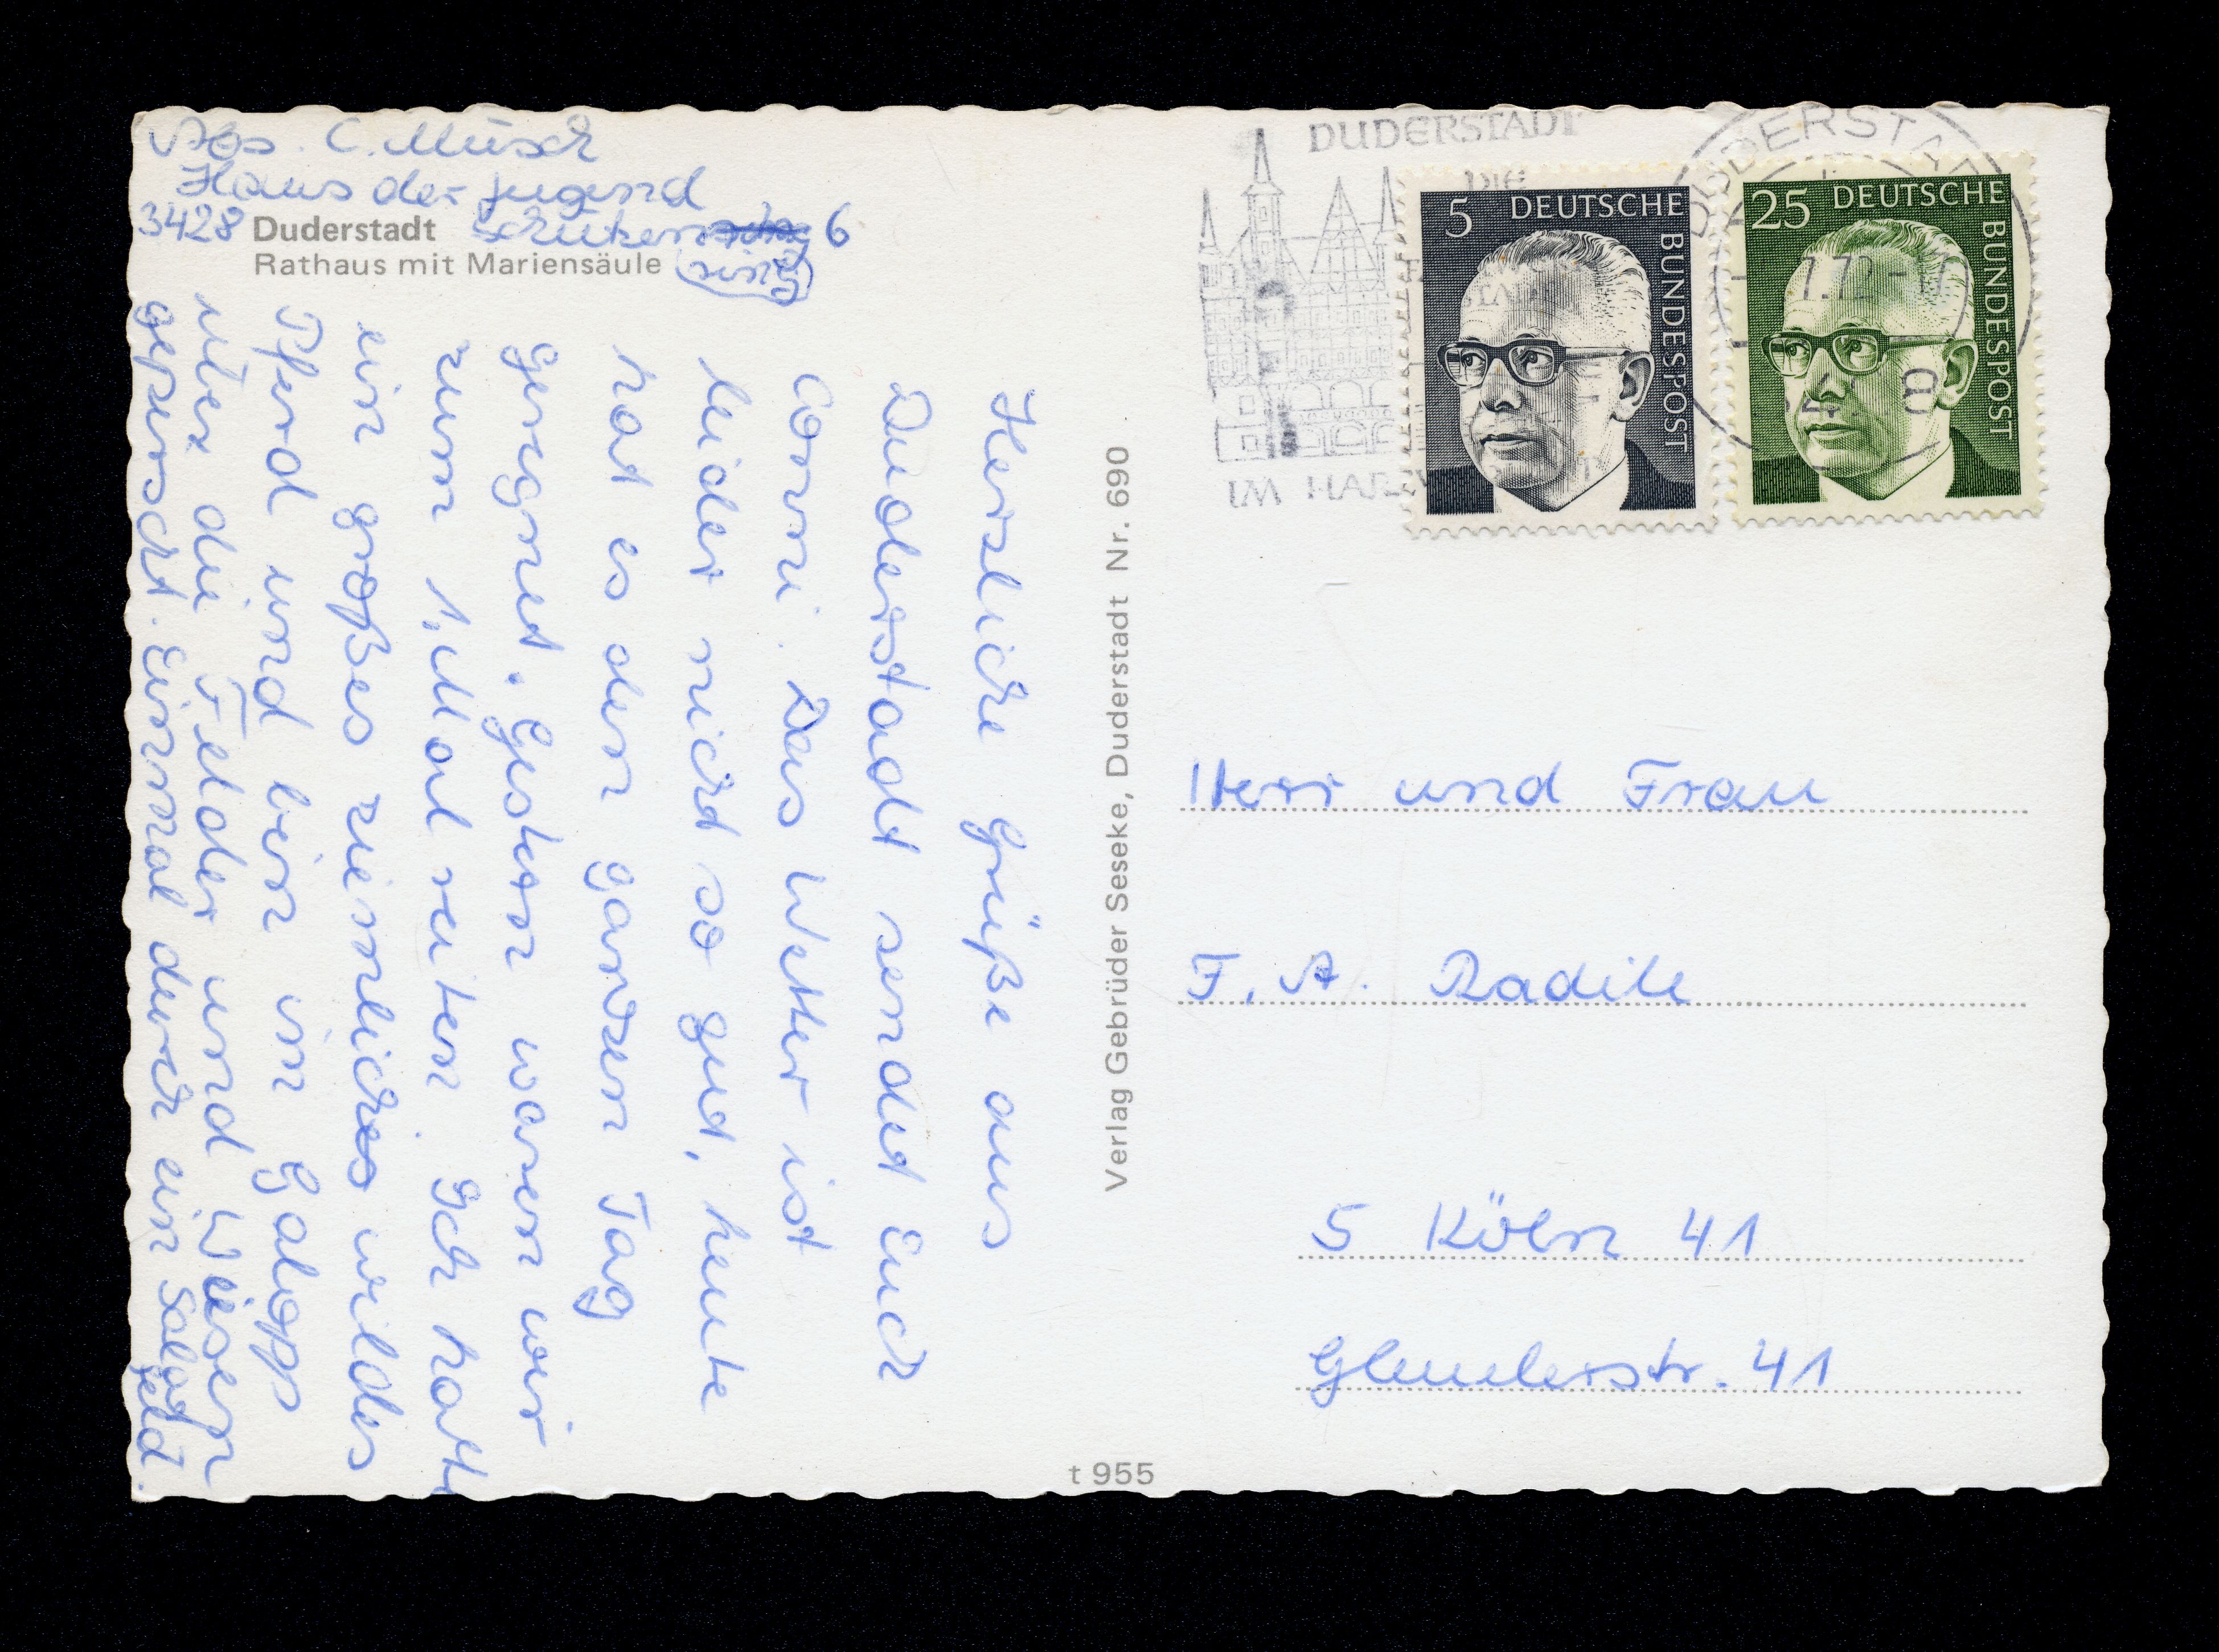 Abs. C. Müsch
Haus der Jugend
3428 Duderstadt Schützen 6
ring
Rathaus mit Mariensäule
Herzliche Grüße aus
Duderstadt sendet Euch
Conni. Das Wetter ist
leider nicht so gut, heute
hat es den ganzen Tag
geregnet. Gestern waren wir
zum 1. Mal reiten. Ich hatte
ein großes ziemliches wildes
Pferd und bin im Galopp
über die Felder und Wiesen
geprescht. Einmal durch ein Salat
feld.
Verlag Gebrüder Seseke, Duderstadt Nr. 690
t 955
DUDERSTADT
DIE
IM HARZ
DUDERSTADT
7.72
a
5 DEUTSCHE BUNDESPOST
25 DEUTSCHE BUNDESPOST
Herr und Frau
F. A.
5 Köln 41
41